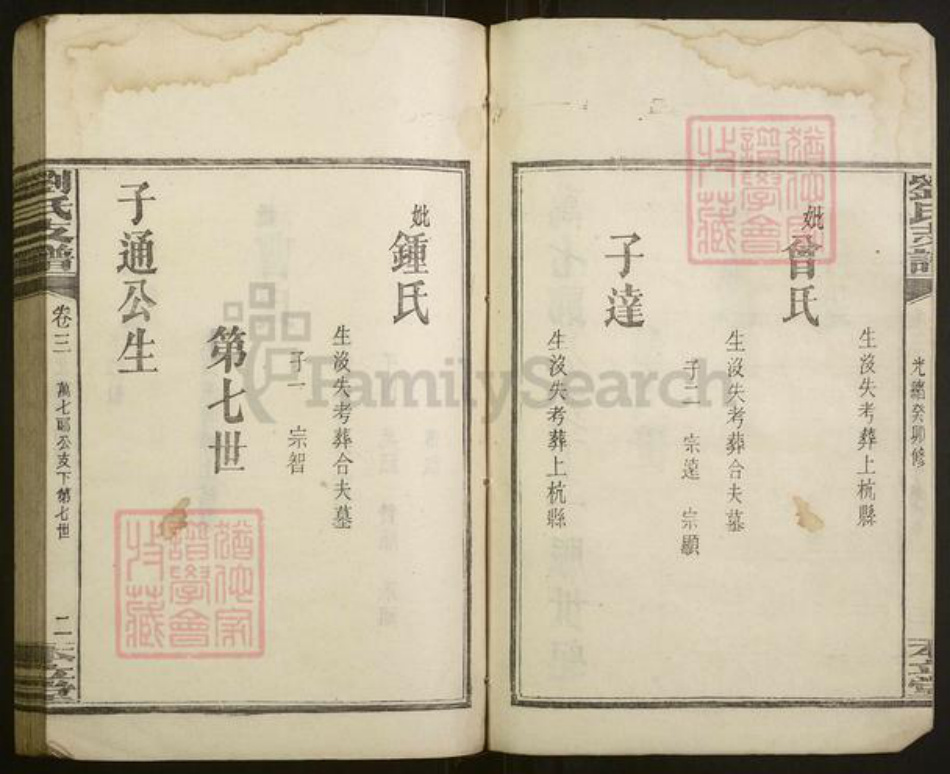 劉氏支譜
光緒癸卯修
本立堂
生沒失考葬上杭縣
妣曾氏
生沒失考葬合夫墓
子二 宗遠 宗顯
子達
生沒失考葬上杭縣
妣鍾氏
生沒失考葬合夫墓
子一 宗智
第七世
子通公生
劉氏支譜
卷三
萬七郎公支下第七世
二
本立堂
FamilySearch